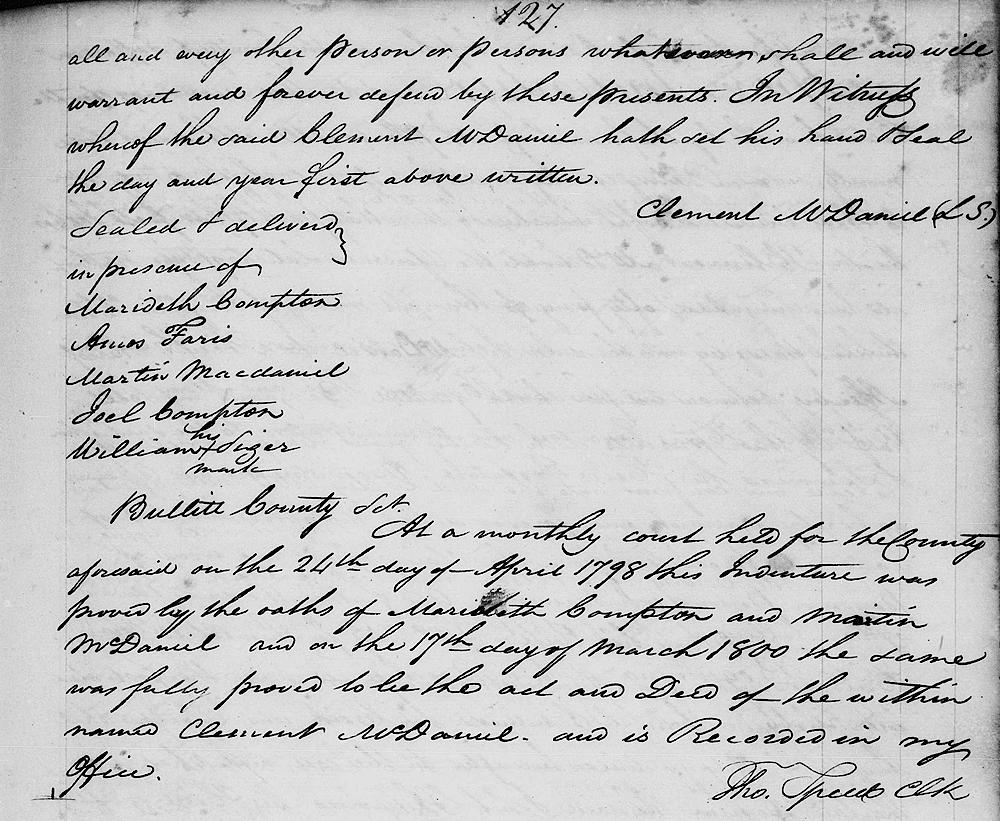 127.
all and every other Person or Persons whatsoever shall and will
warrant and forever defend by these presents. In Witness
whereof the said Clement McDaniel hath set his hand & Seal
the day and year first above written.
Clement McDaniel (L S.)
Sealed & deliverd
in presence of
Marideth Compton
Amos Faris
Martin Macdaniel
Joel Compton
his
William + Sizer
mark
Bullitt County Sct.
At a monthly court held for the County
aforesaid on the 24th day of April 1798 this Indenture was
proved by the oaths of Marideth Compton and Martin
McDaniel and on the 17th day of March 1800 the same
was fully proved to be the act and Deed of the within
named Clement McDaniel. and is Recorded in my
Office.
Tho. Speed Clk